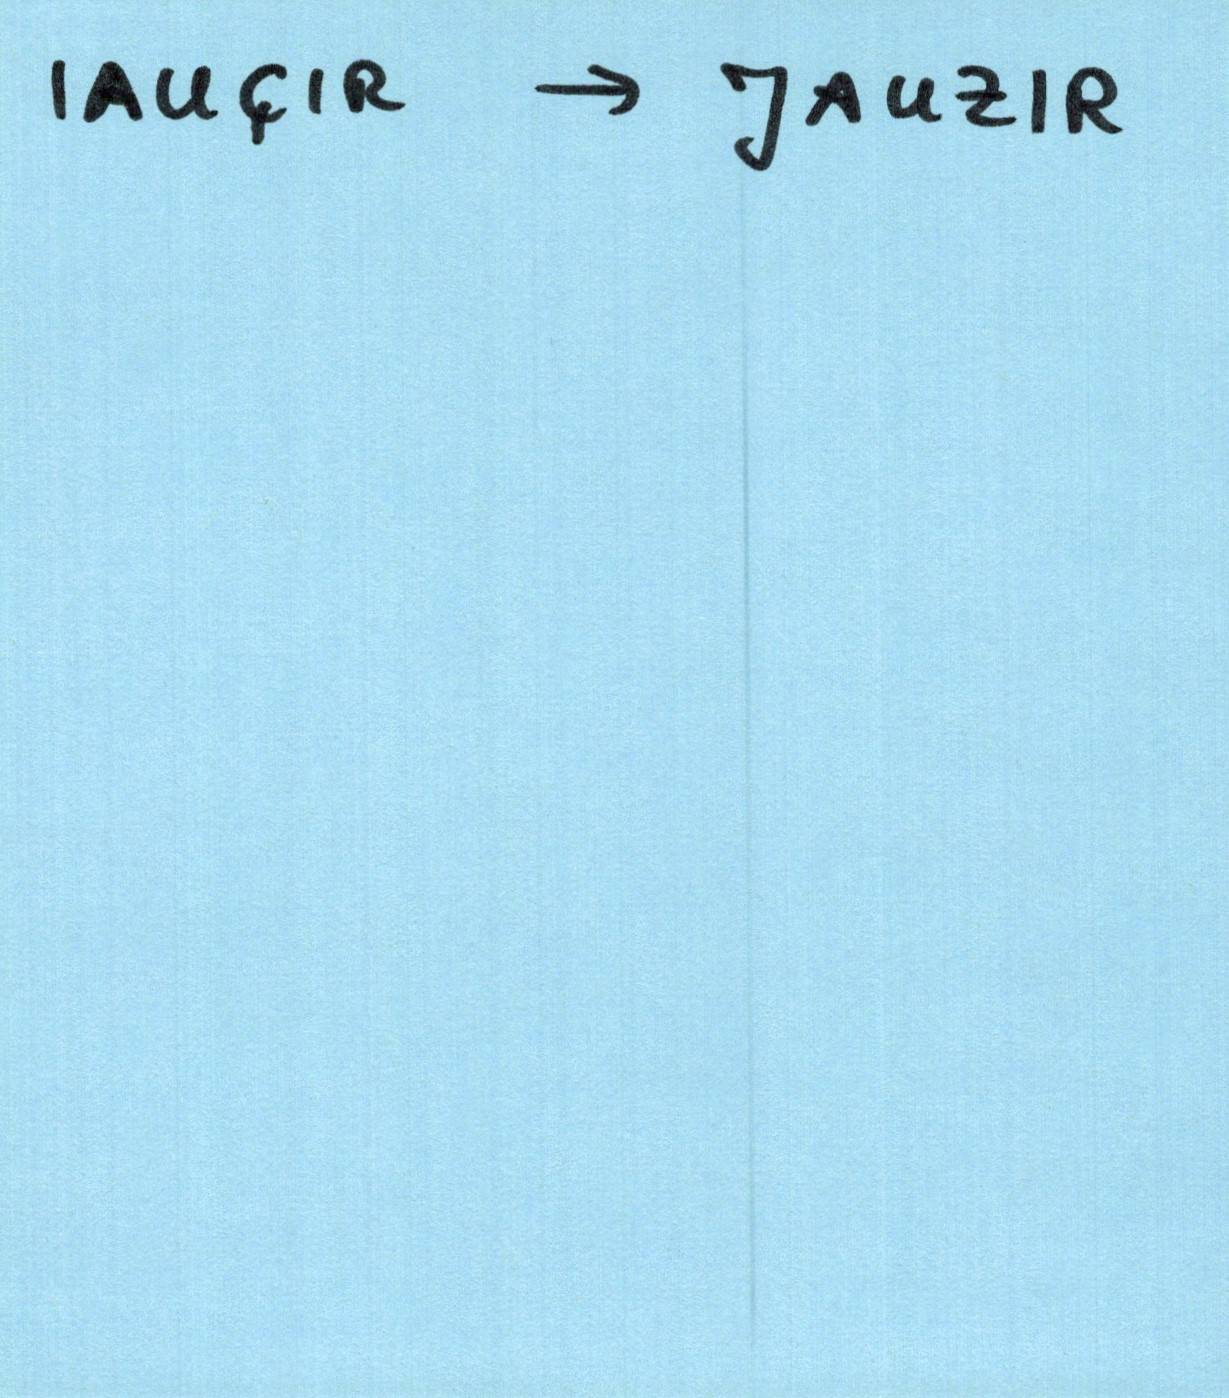 IAUÇIR → JAUZIR